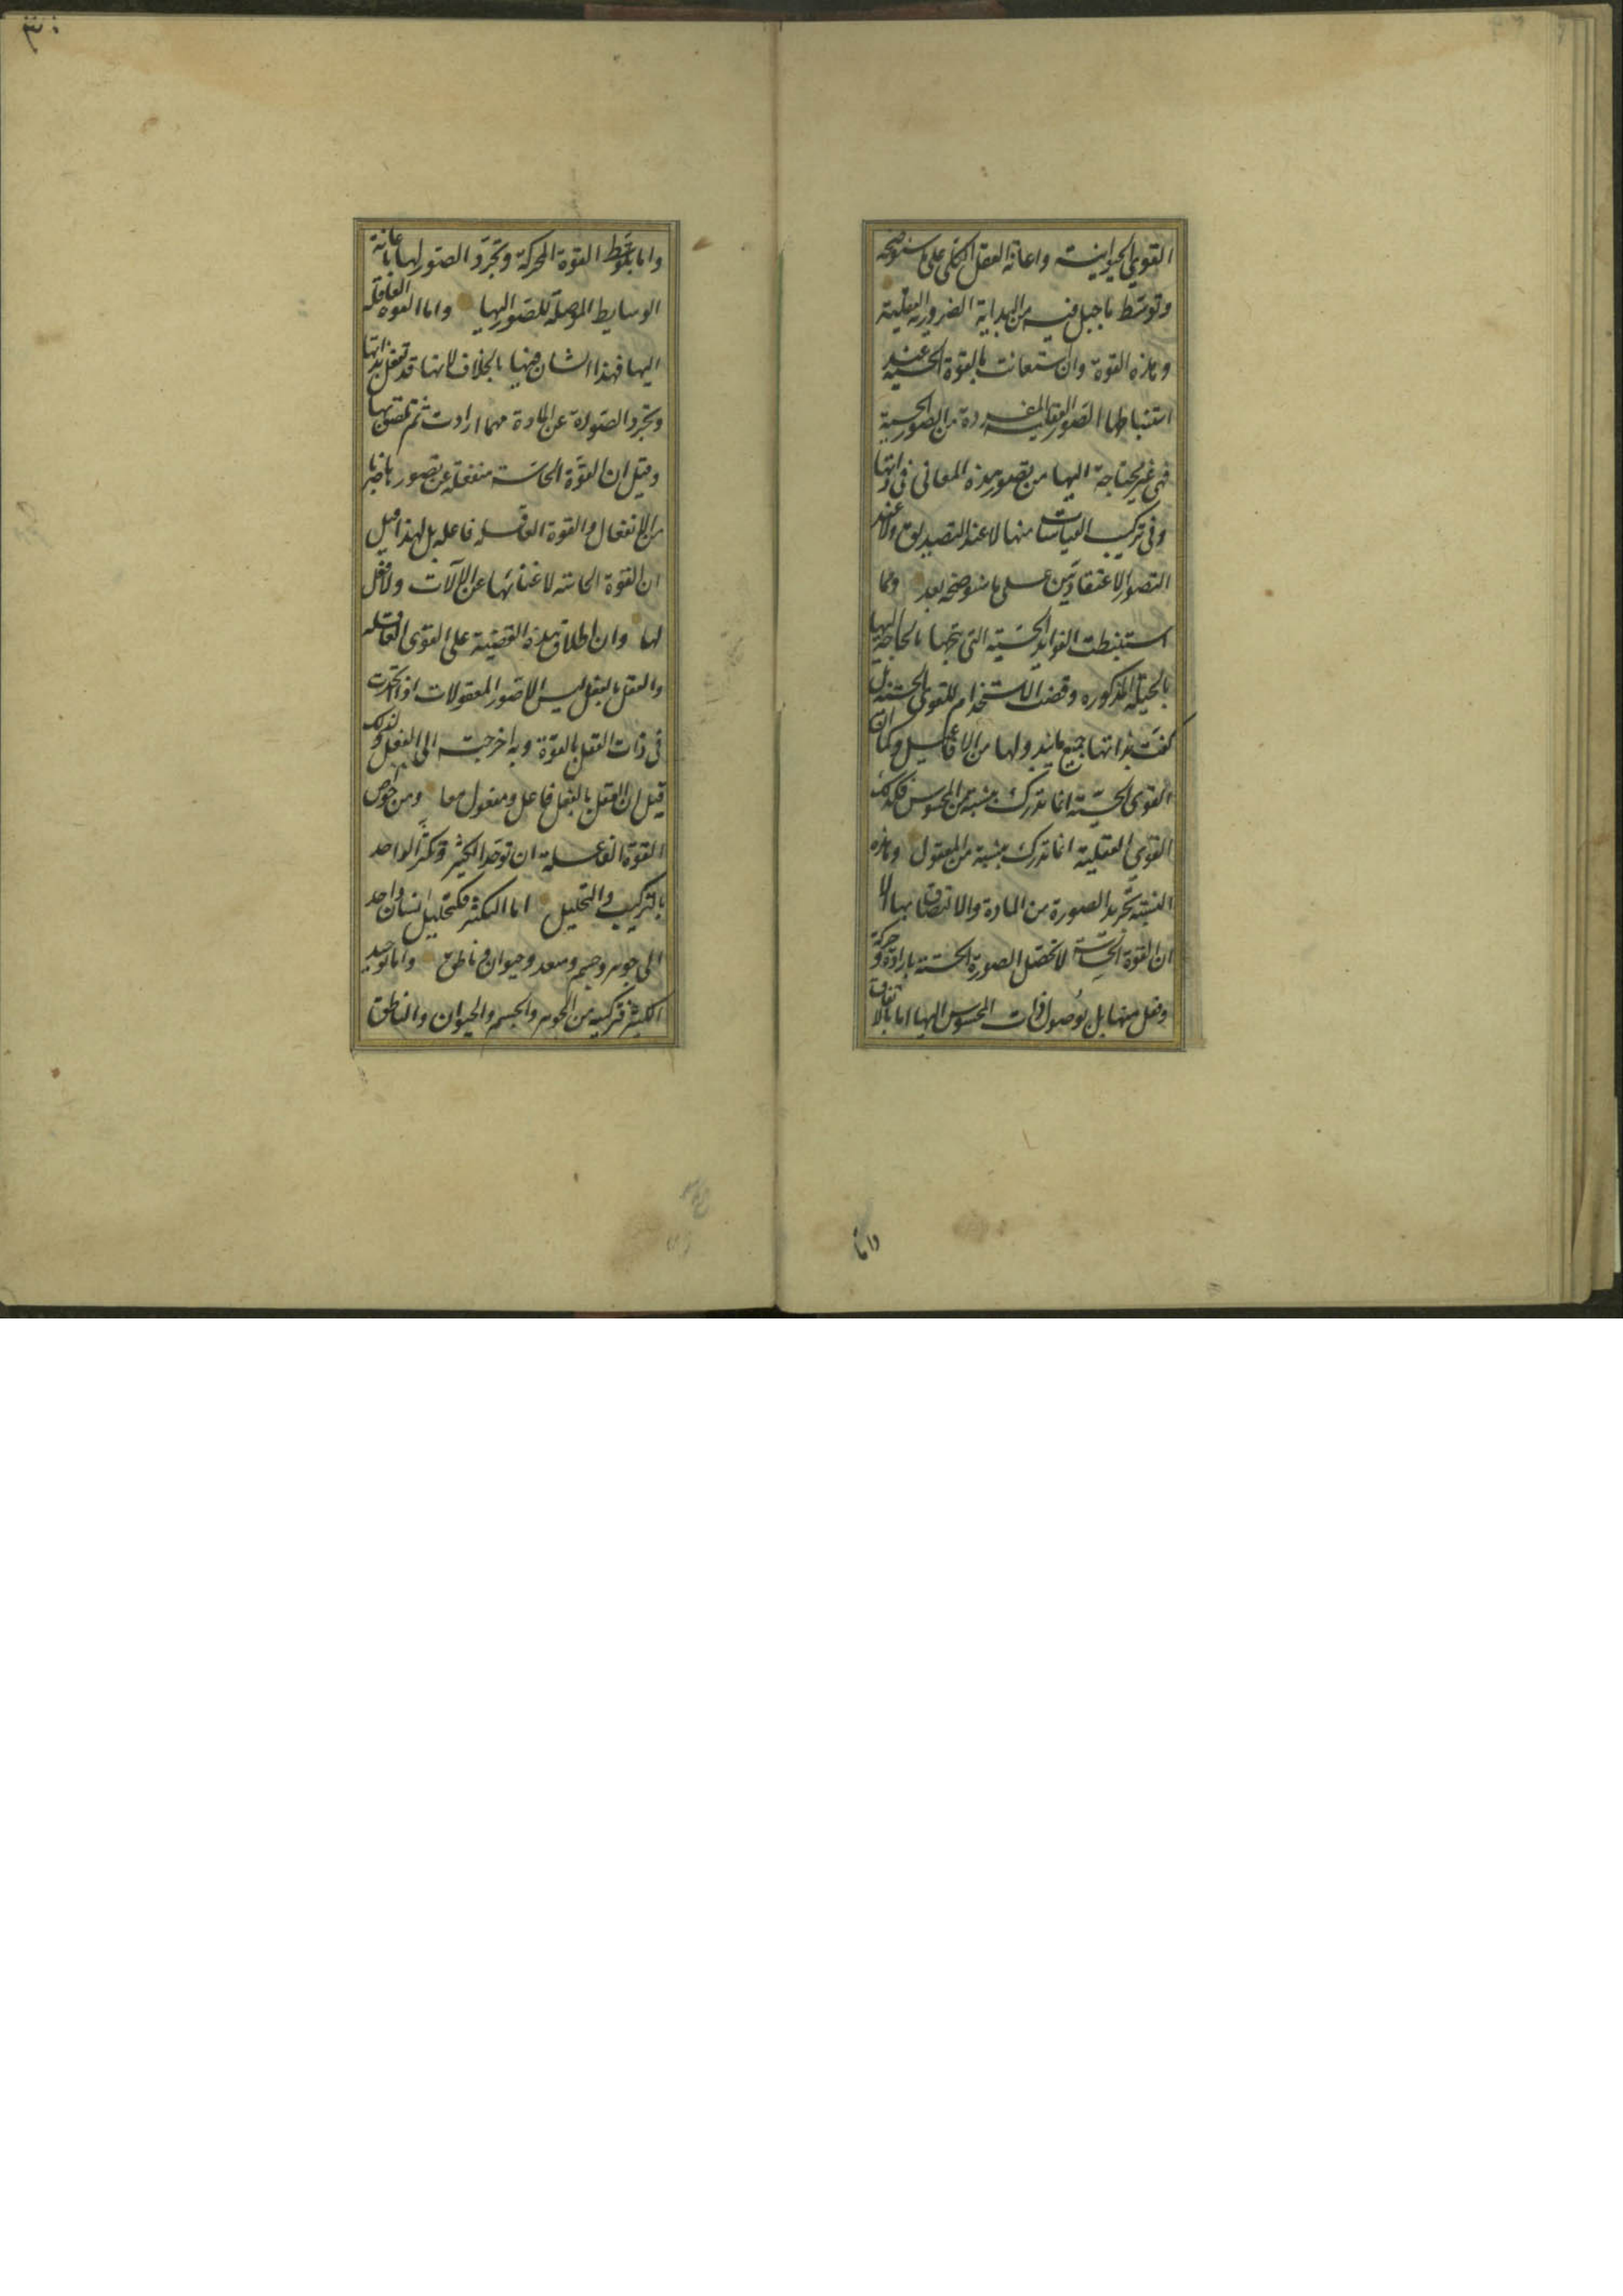 القوى الحيوانية واعانة العقل الكلى على ما سنوضحه
وتوسط ما جبل فيه من البداية الضرورية العقلية
وهذه القوة وان استعانت بالقوة الحسية عند
استنباطها الصور العقلية المفردة من الصور الحسية
فهى غير محتاجة اليها من تصور هذه المعانى فى ذاتها
وفى تركيب القياسات منها لا عند التصديق ولا عند
التصور الاعتقادين على ما سنوضحه بعد ومما
استنبطت الفوايد الحسية التى تتجها بالحاجة اليها
بالحيلة المذكوره وقضت الاستخدام للقوى الحسية بل
كفت بذاتها جميع مايبدو لها من الافاعيل وكما ان
القوى الحسية انما تدرك بتشبه من المحسوس فكذلك
القوى العقلية انما تدرك بتشبه من المعقول وهذه
النسبة تجريد الصورة من المادة والالتصاق بها الا
ان القوة الحاسة لا تحصل الصورة الحسية بارادة وحركة
وفعل منها بل بوصول ذات المحسوس اليها اما بالاتفاق
واما
٣٠
واما بتوسط القوة المحركة وتجرد الصور لها باعانة
الوسايط الموصلة للصور اليها واما القوة العاقلة
اليها فهذا الشان فيها بالخلاف لانها قد تعقل بذاتها
وتجرد الصورة عن المادة مهما ارادت ثم تلتصق بها
وقيل ان القوة الحاسة منفعلة عن تصورها ضربا
من الانفعال والقوة العاقلة فاعله بل لهذا قيل
ان القوة الحاسة لا غناء بها عن الآلات ولا فعل
لها وان اطلاق هذه القضية على القوى العاقلة
والعقل بالفعل ليس الا صور المعقولات اذا تحدت
فى ذات العقل بالقوة وبه اخرجت الى الفعل ولذلك
قيل ان العقل بالفعل فاعل ومفعول معا ومن خواص
القوة العاقلة ان توحد الكثير وتكثر الواحد
بالتركيب والتحليل اما التكثر فكتحليل انسان واحد
الى جوهر وجسم ومتعد وحيوان وناطق واما توحيد
الكثير فتركيبه من الجوهر والجسم والحيوان والناطق